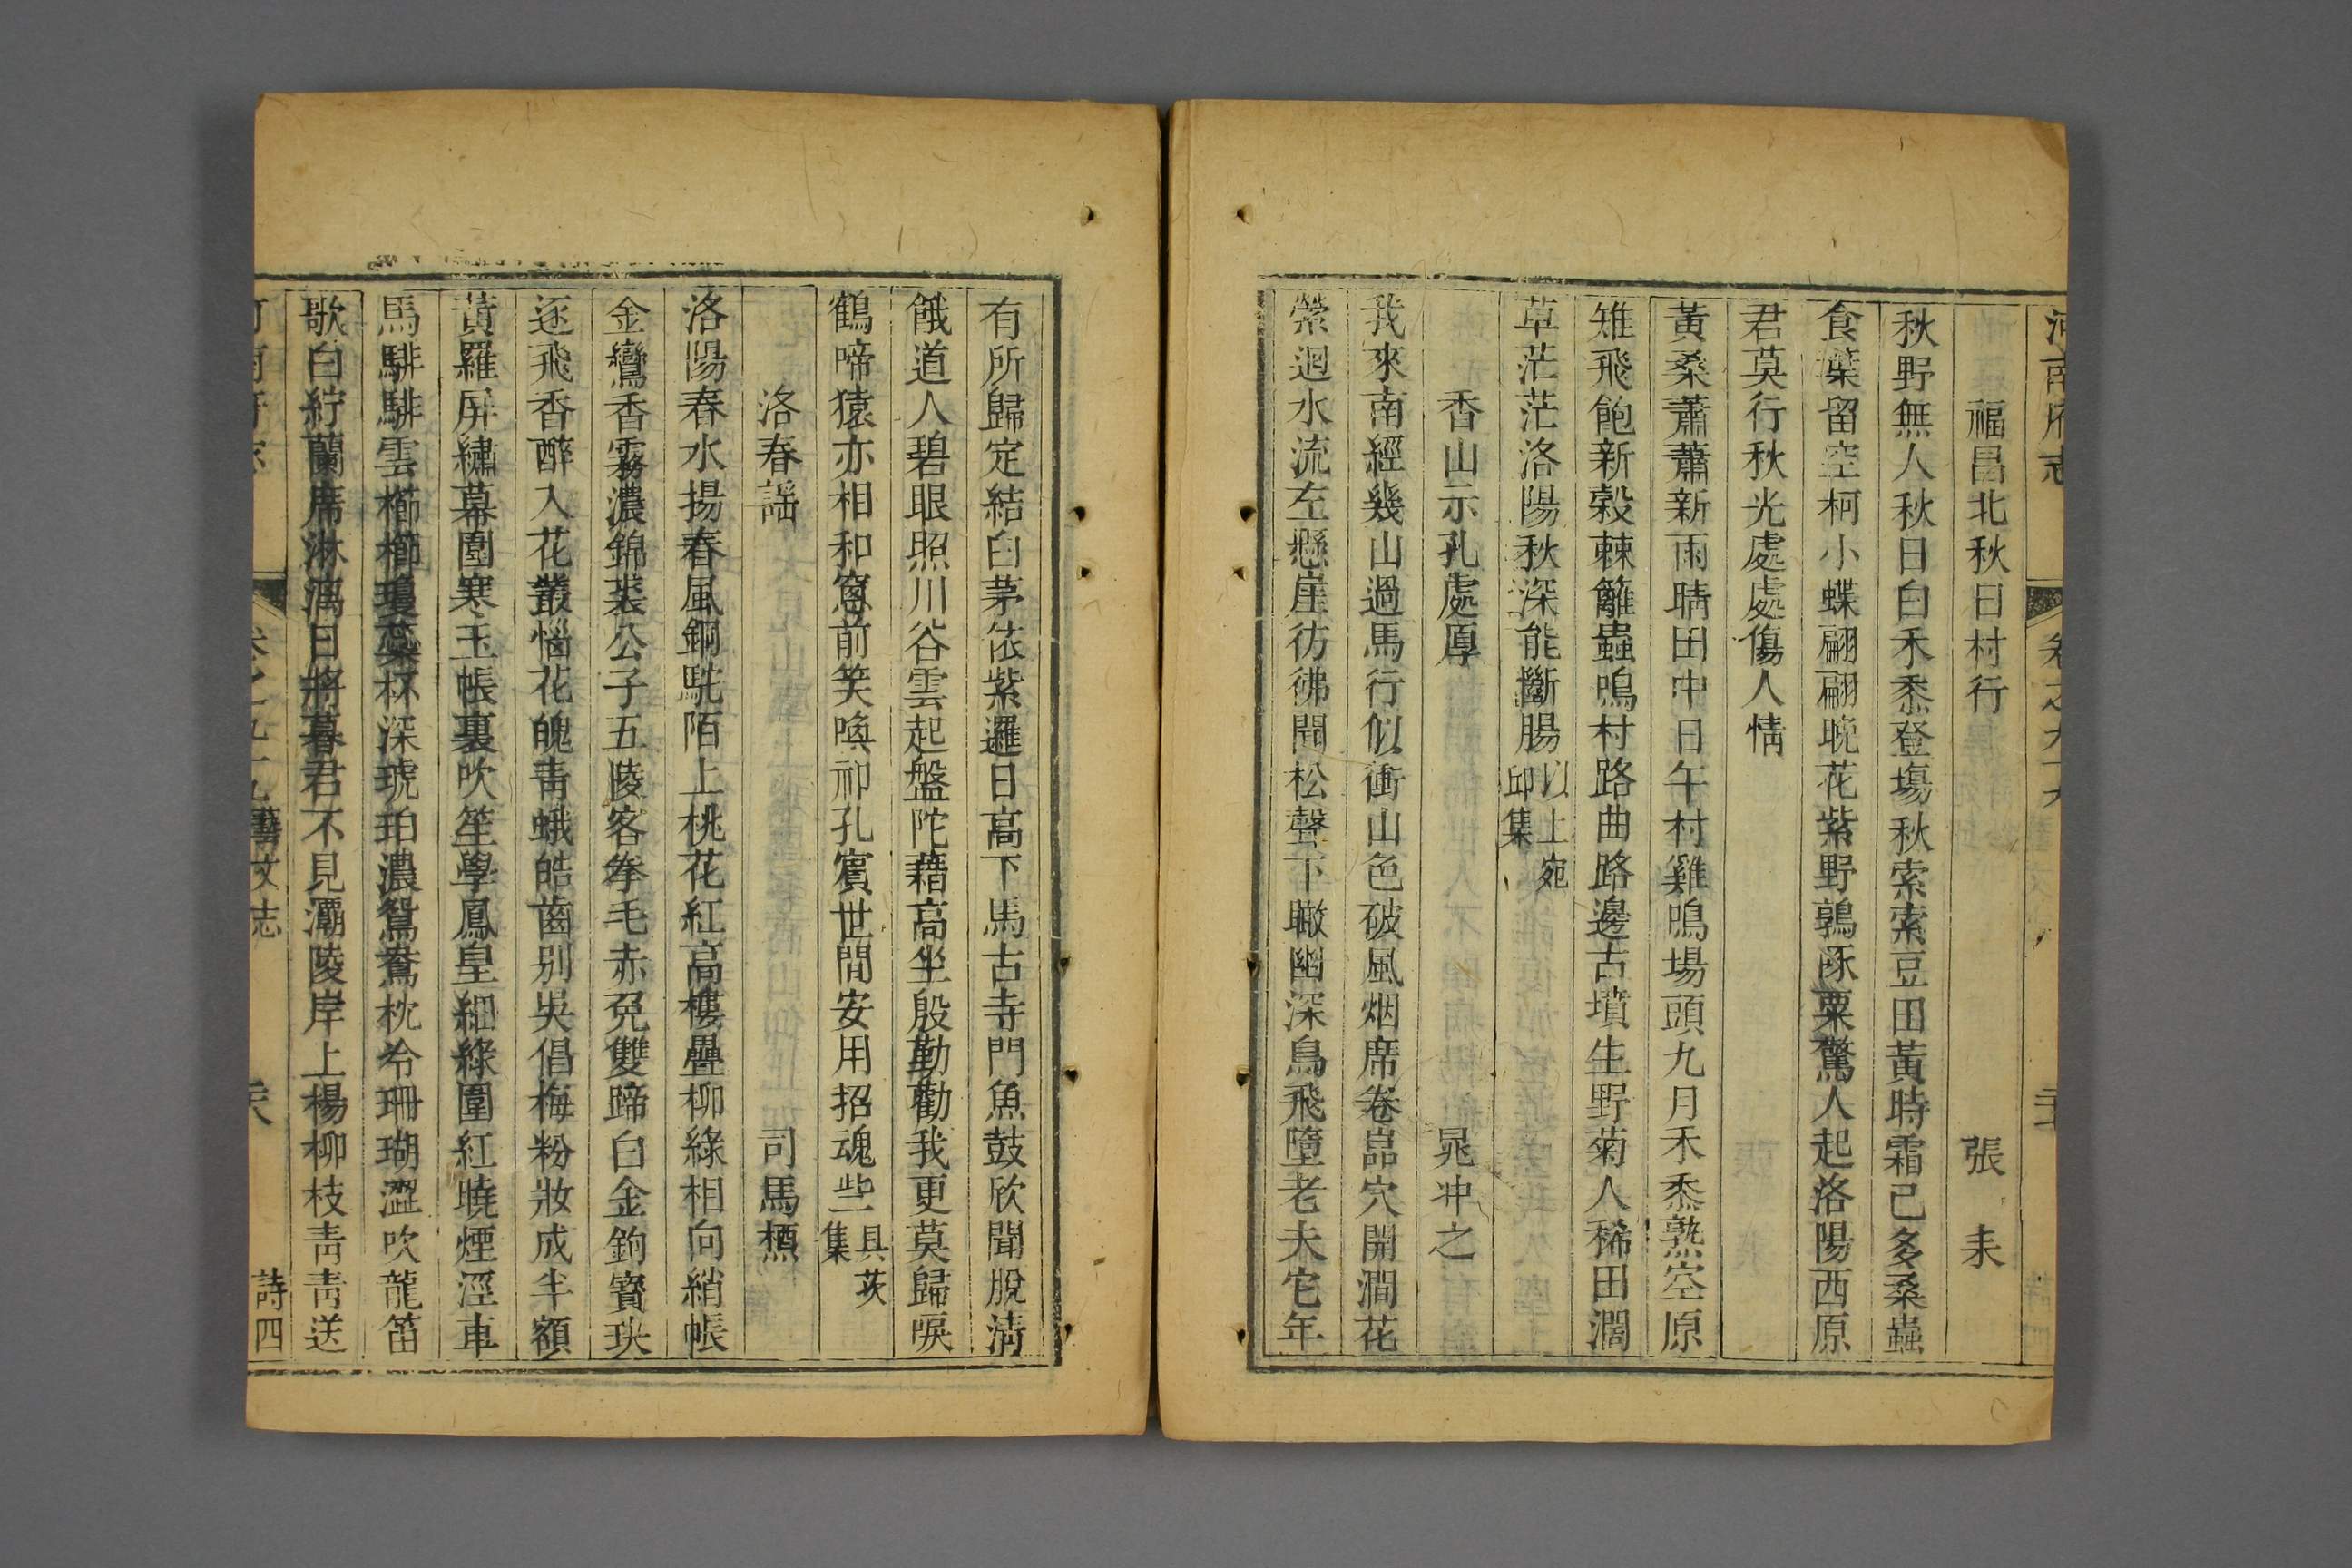 河南府志
卷之九十九
福昌北秋日村行
張耒
秋野無人秋日白禾黍登塲秋索索豆田黃時霜已多桑蟲
食葉留空柯小蝶翩翩晚花紫野鶉啄粟驚人起洛陽西原
君莫行秋光處處傷人情
黃桑蕭蕭新雨晴田中日午村雞鳴場頭九月禾黍熟空原
雉飛飽新穀棘籬蟲鳴村路曲路邊古墳生野菊人稀田濶
草茫茫洛陽秋深能斷腸以上宛邱集
香山示孔處厚
晁冲之
我來南經幾山過馬行似衝山色破風烟席卷嵓穴開澗花
縈迴水流左懸崖彷彿聞松聲下瞰幽深鳥飛墮老夫它年
有所歸定結白茅依紫邏日高下馬古寺門魚鼓欣聞脫淸
餓道人碧眼照川谷雲起盤陀藉高坐殷勤勸我更莫歸唳
鶴啼猿亦相和窻前笑喚祁孔賓世間安用招魂些具茨集
洛春謡
司馬槱
洛陽春水揚春風銅駝陌上桃花紅高樓疊柳綠相向綃帳
金鸞香霧濃錦裘公子五陵客拳毛赤兔雙蹄白金鉤寶玦
逐飛香醉入花叢惱花魄靑蛾皓齒别吳倡梅粉妝成半額
黃羅屏繡幕圍寒玉帳裏吹笙學鳳皇細綠圍紅曉煙溼車
馬騑騑雲櫛櫛瓊蘂杯深琥珀濃鴛鴦枕冷珊瑚澀吹龍笛
歌白紵蘭席淋漓日將暮君不見灞陵岸上楊柳枝靑靑送
藝文志
詩四